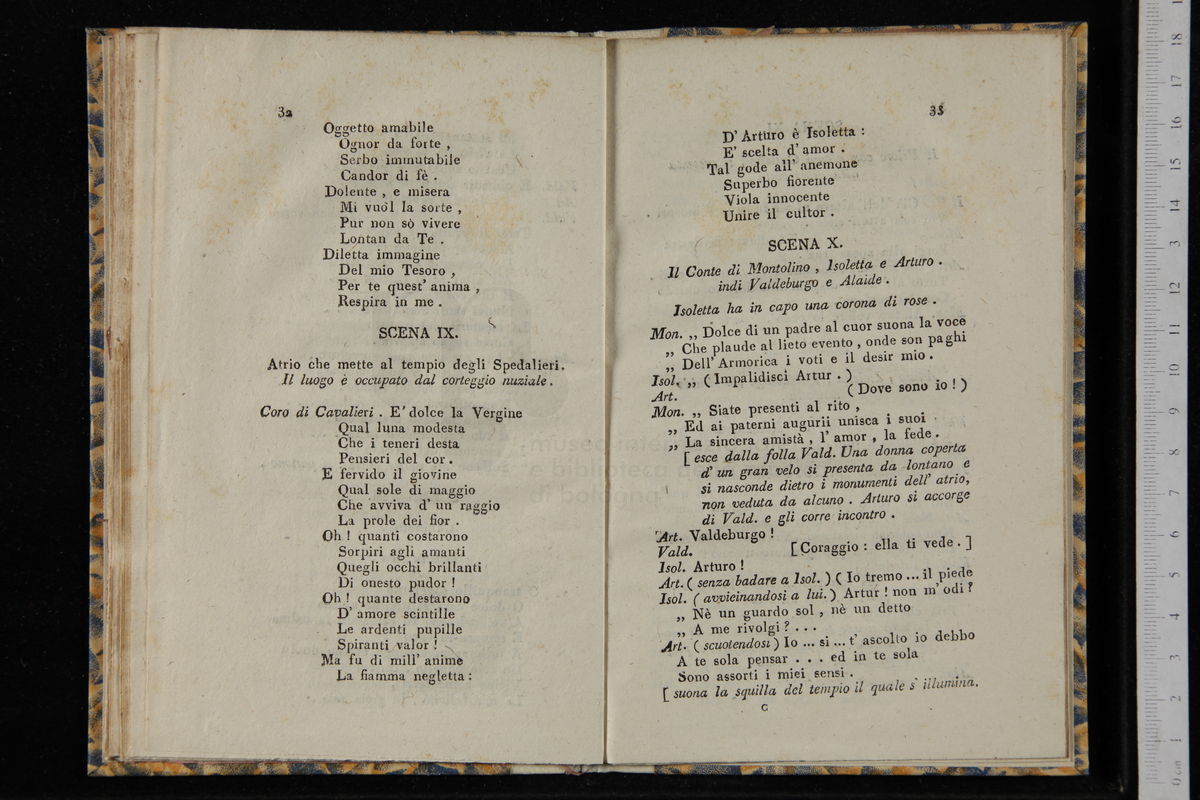 32
Oggetto amabile
Ognor da forte ,
Serbo immutabile
Candor di fè .
Dolente , e misera
Mi vuol la sorte ,
Pur non sò vivere
Lontan da Te .
Diletta immagine
Del mio Tesoro ,
Per te quest' anima ,
Respira in me .
SCENA IX.
Atrio che mette al tempio degli Spedalieri.
Il luogo è occupato dal corteggio nuziale .
Coro di Cavalieri . E' dolce la Vergine
Qual luna modesta
Che i teneri desta
Pensieri del cor .
E fervido il giovine
Qual sole di maggio
Che avviva d' un raggio
La prole dei fior .
Oh ! quanti costarono
Sorpiri agli amanti
Quegli occhi brillanti
Di onesto pudor !
Oh ! quante destarono
D' amore scintille
Le ardenti pupille
Spiranti valor !
Ma fu di mill' anime
La fiamma negletta :
33
D' Arturo è Isoletta :
E' scelta d' amor .
Tal gode all' anemone
Superbo fiorente
Viola innocente
Unire il cultor .
SCENA X.
Il Conte di Montolino , Isoletta e Arturo .
indi Valdeburgo e Alaide .
Isoletta ha in capo una corona di rose .
Mon. ,, Dolce di un padre al cuor suona la voce
,, Che plaude al lieto evento , onde son paghi
,, Dell' Armorica i voti e il desir mio .
Isol. ,, ( Impalidisci Artur . )
Art. ( Dove sono io ! )
Mon. ,, Siate presenti al rito ,
,, Ed ai paterni augurii unisca i suoi
,, La sincera amistà , l' amor , la fede .
[ esce dalla folla Vald. Una donna coperta
d' un gran velo si presenta da lontano e
si nasconde dietro i monumenti dell' atrio,
non veduta da alcuno . Arturo si accorge
di Vald. e gli corre incontro .
Art. Valdeburgo !
Vald. [ Coraggio : ella ti vede . ]
Isol. Arturo !
Art. ( senza badare a Isol. ) ( Io tremo ... il piede
Isol. ( avvicinandosi a lui. ) Artur ! non m' odi ?
,, Nè un guardo sol , nè un detto
,, A me rivolgi ? . . .
Art. ( scuotendosi ) Io ... si ... t' ascolto io debbo
A te sola pensar . . . ed in te sola
Sono assorti i miei sensi .
[ suona la squilla del tempio il quale s' illumina.
C
museo inter
e biblioteca d
di bologna
0 cm 1 2 3 4 5 6 7 8 9 10 11 12 13 14 15 16 17 18